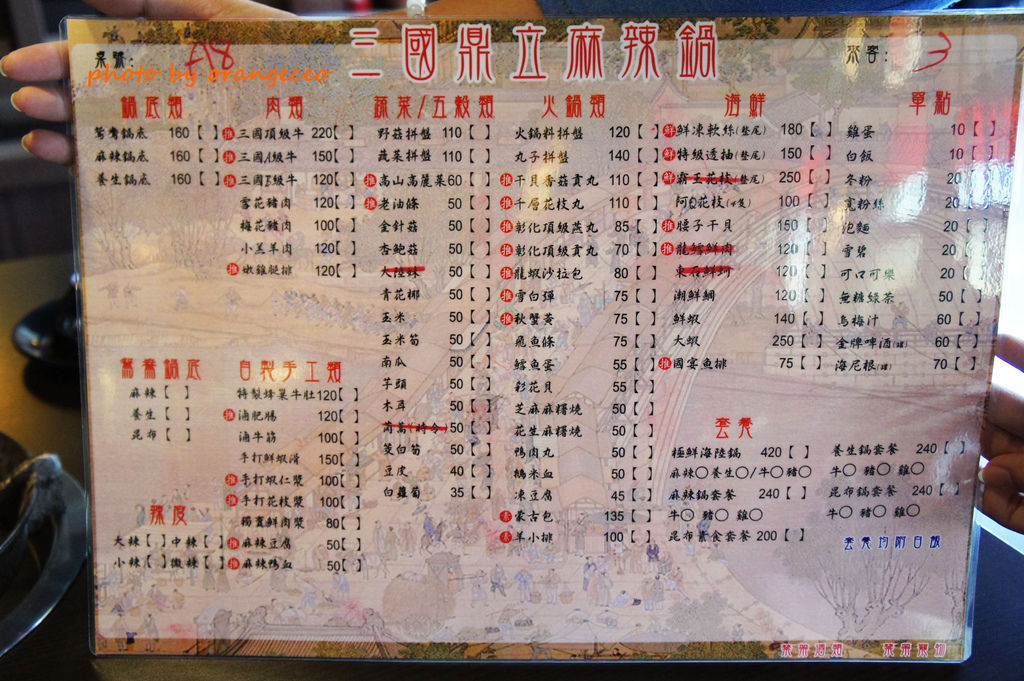 三國鼎立麻辣鍋
桌號: A8
來客: 3
photo by orangecco
鍋底類
鴛鴦鍋底 160【 】
麻辣鍋底 160【 】
養生鍋底 160【 】
肉類
推 三國頂級牛 220【 】
推 三國A級牛 150【 】
推 三國F級牛 120【 】
雪花豬肉 120【 】
梅花豬肉 100【 】
小羔羊肉 120【 】
推 嫩雞腿排 120【 】
蔬菜/五穀類
野菇拼盤 110【 】
蔬菜拼盤 110【 】
推 高山高麗菜 60【 】
推 老油條 50【 】
金針菇 50【 】
杏鮑菇 50【 】
大陸妹 50【 】
青花椰 50【 】
玉米 50【 】
玉米筍 50【 】
南瓜 50【 】
芋頭 50【 】
木耳 50【 】
茼蒿(時令) 50【 】
茭白筍 50【 】
豆皮 40【 】
白蘿蔔 35【 】
火鍋類
火鍋料拼盤 120【 】
丸子拼盤 140【 】
推 干貝香菇貢丸 110【 】
推 千層花枝丸 110【 】
推 彰化頂級燕丸 85【 】
推 彰化頂級貢丸 70【 】
推 龍蝦沙拉包 80【 】
推 雪白彈 75【 】
推 秋蟹黃 75【 】
飛魚條 75【 】
鱈魚蛋 55【 】
彩花貝 55【 】
芝麻麻糬燒 50【 】
花生麻糬燒 50【 】
鴨肉丸 50【 】
鵝米血 50【 】
凍豆腐 45【 】
素 蒙古包 135【 】
素 羊小排 100【 】
海鮮
鮮 鮮凍軟絲(整尾) 180【 】
鮮 特級透抽(整尾) 150【 】
鮮 霸王花枝(整尾) 250【 】
阿Q花枝 100【 】
推 腰子干貝 150【 】
推 龍鱈鮮肉 120【 】
東石鮮蚵 120【 】
潮鯛 120【 】
鮮蝦 140【 】
大蝦 250【 】
推 國宴魚排 75【 】
單點
雞蛋 10【 】
白飯 10【 】
冬粉 20【 】
寬粉絲 20【 】
泡麵 20【 】
雪碧 20【 】
可口可樂 20【 】
無糖綠茶 50【 】
烏梅汁 60【 】
金牌啤酒(罐) 60【 】
海尼根(罐) 70【 】
鴛鴦鍋底
麻辣【 】
養生【 】
昆布【 】
辣度
大辣【 】中辣【 】
小辣【 】微辣【 】
自製手工類
特製蜂巢牛肚 120【 】
推 滷肥腸 120【 】
滷牛筋 100【 】
手打鮮蝦滑 150【 】
推 手打蝦仁漿 100【 】
推 手打花枝漿 100【 】
獨賣鮮肉漿 80【 】
推 麻辣豆腐 50【 】
推 麻辣鴨血 50【 】
套餐
極鮮海陸鍋 420【 】
麻辣○養生○/牛○豬○
麻辣鍋套餐 240【 】
牛○ 豬○ 雞○
昆布素食套餐 200【 】
養生鍋套餐 240【 】
牛○ 豬○ 雞○
昆布鍋套餐 240【 】
牛○ 豬○ 雞○
套餐均附白飯